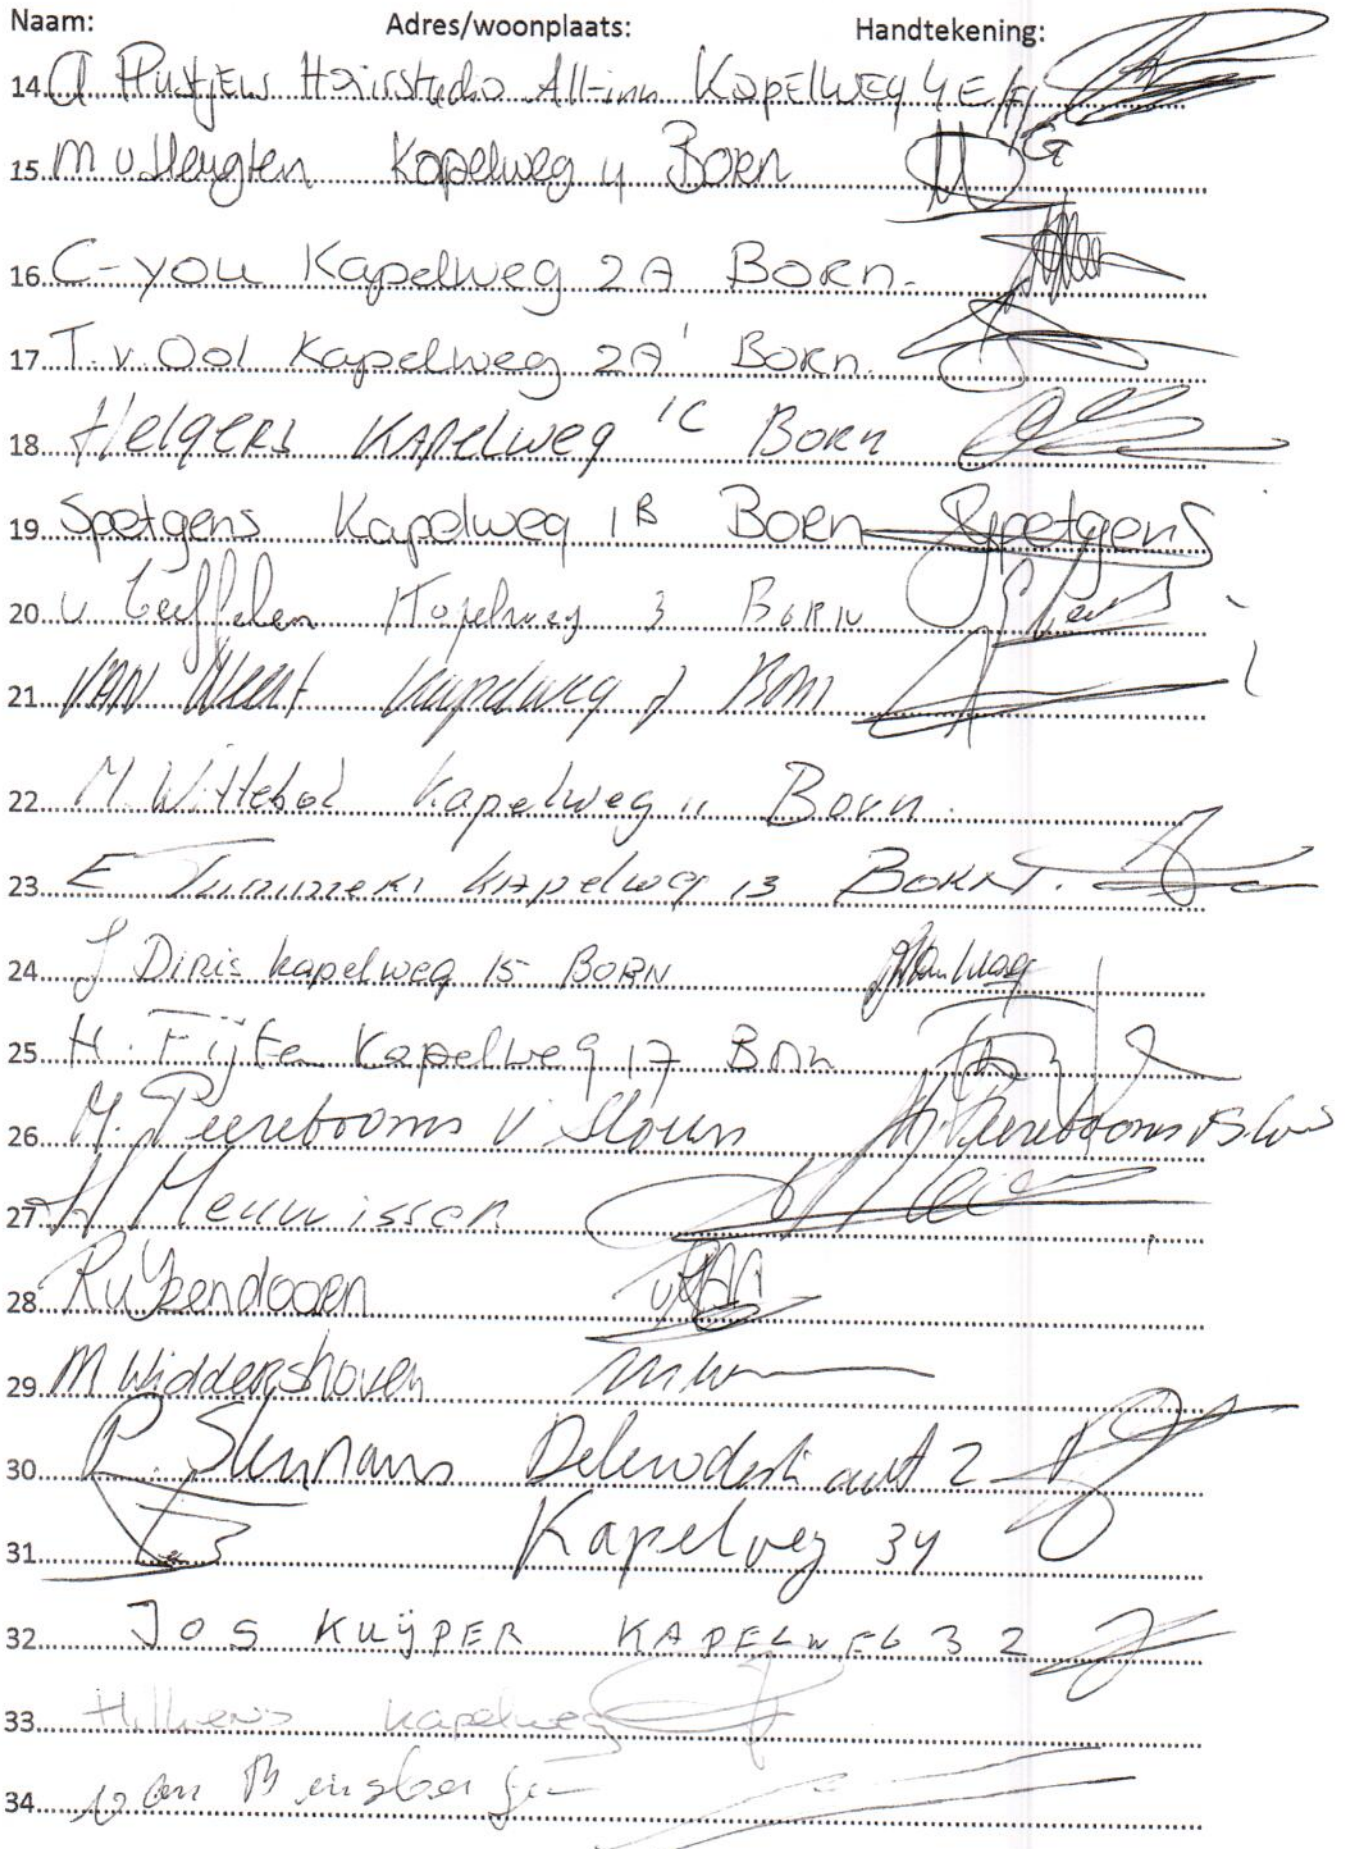 Naam: Adres/woonplaats: Handtekening:
14. Hairstudio All-inn Kapelweg 4E/F
15. M v Heugten Kapelweg 4 Born
16. C-you Kapelweg 2A Born.
17. T. v. Ool Kapelweg 2A' Born.
18. Helgers Kapelweg 1C Born
19. Spetgens Kapelweg 1B Born Spetgens
20. v. Kapelweg 3 Born
21. VAN Weert Kapelweg Born
22. M. Wittebol Kapelweg 11 Born.
23. E Kapelweg 13 BORN.
24. J Diris kapelweg 15 BORN
25. H. Fijten Kapelweg 17 Born
26. M. Peerebooms v Sloun M. Peerebooms v Sloun
27. H Meuwissen
28. Ruijzendaal
29. M Widdershoven
30. R. 2
31. Kapelweg 34
32. Jos KUŸPER KAPELWEG 32
33. Kapelweg
34. van